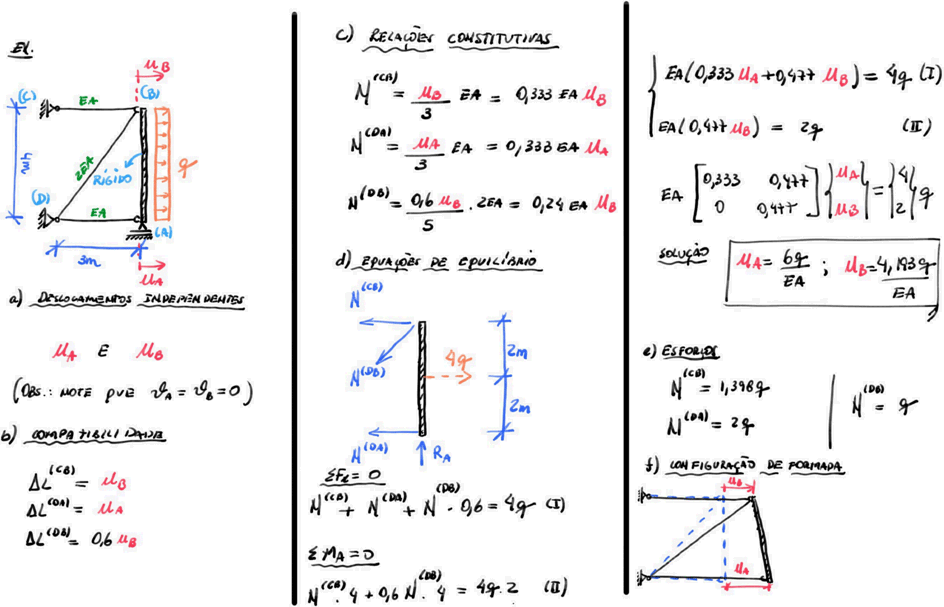 EX.
u_B
(C) EA (B)
4m 2EA RÍGIDO q
(D) EA (A)
3m
u_A
a) DESLOCAMENTOS INDEPENDENTES
u_A E u_B
(OBS.: NOTE QUE ϑ_A = ϑ_B = 0)
b) COMPATIBILIDADE
ΔL^(CB) = u_B
ΔL^(DA) = u_A
ΔL^(DB) = 0,6 u_B
c) RELAÇÕES CONSTITUTIVAS
N^(CB) = u_B/3 EA = 0,333 EA u_B
N^(DA) = u_A/3 EA = 0,333 EA u_A
N^(DB) = 0,6 u_B/5 . 2EA = 0,24 EA u_B
d) EQUAÇÕES DE EQUILÍBRIO
N^(CB)
2m
N^(DB) 4q
2m
N^(DA) R_A
ΣF_x = 0
N^(CB) + N^(DA) + N^(DB) . 0,6 = 4q (I)
ΣM_A = 0
N^(CB) . 4 + 0,6 N^(DB) . 4 = 4q . 2 (II)
EA(0,333 u_A + 0,477 u_B) = 4q (I)
EA(0,477 u_B) = 2q (II)
EA [0,333 0,477] {u_A} = {4} q
[0 0,477] {u_B} {2}
SOLUÇÃO u_A = 6q/EA ; u_B = 4,193q/EA
e) ESFORÇOS
N^(CB) = 1,398q
N^(DA) = 2q
N^(DB) = q
f) CONFIGURAÇÃO DEFORMADA
u_B
u_A